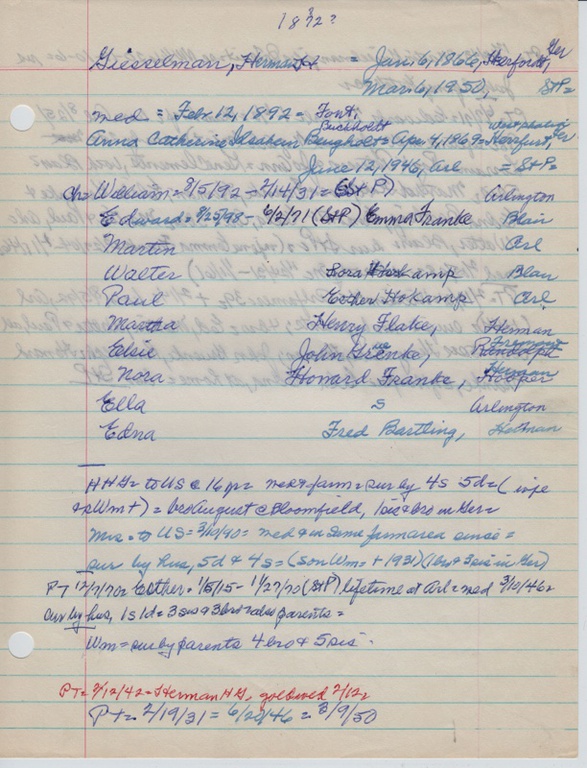 1872?
Giesselman, Herman H = Jan, 6, 1866, Herford, Ger
Mar. 6, 1950, StP=
med = Feb. 12, 1892 - Font.
Buchholdt Westphalia
Anna Catherine Ilsabein = Apr. 4, 1869 = Ger
June 12, 1946, Arl = StP=
Ch = William = 8/5/92 - 2/14/31 = (StP) Arlington
Edward = 8/25/98 - 6/2/71 (StP) Emma Franke Blair
Martin Arl
Walter Hokamp Blair
Paul Esther Hokamp Arl.
Martha Henry Flake, Herman
Elsie John Randolph
Nora Howard Franke, Hooper
Ella S Arlington
Edna Fred Bartling, Herman
HHG = to US @ 16 yr = med & farm = sur by 4s 5d = (wife
& s Wm +) = bro August @ Bloomfield, 1 sis & bro in Ger =
Mrs = to US = 3/10/90 = med & in same farm area since =
sur by hus, 5d & 4s = (son Wm = + 1931) (1 bro & 3 sis in Ger)
PT 12/7/70 = Esther = 1/5/15 - 1/27/70 (StP) lifetime at Arl = med 3/10/46 =
sur by hus, 1s 1d = 3 sis & 3 bro = also parents =
Wm = sur by parents 4 bro & 5 sis.
PT = 2/12/42 = Herman HG, gol wed 2/12
PT = 2/19/31 = 6/20/46 = 3/9/50